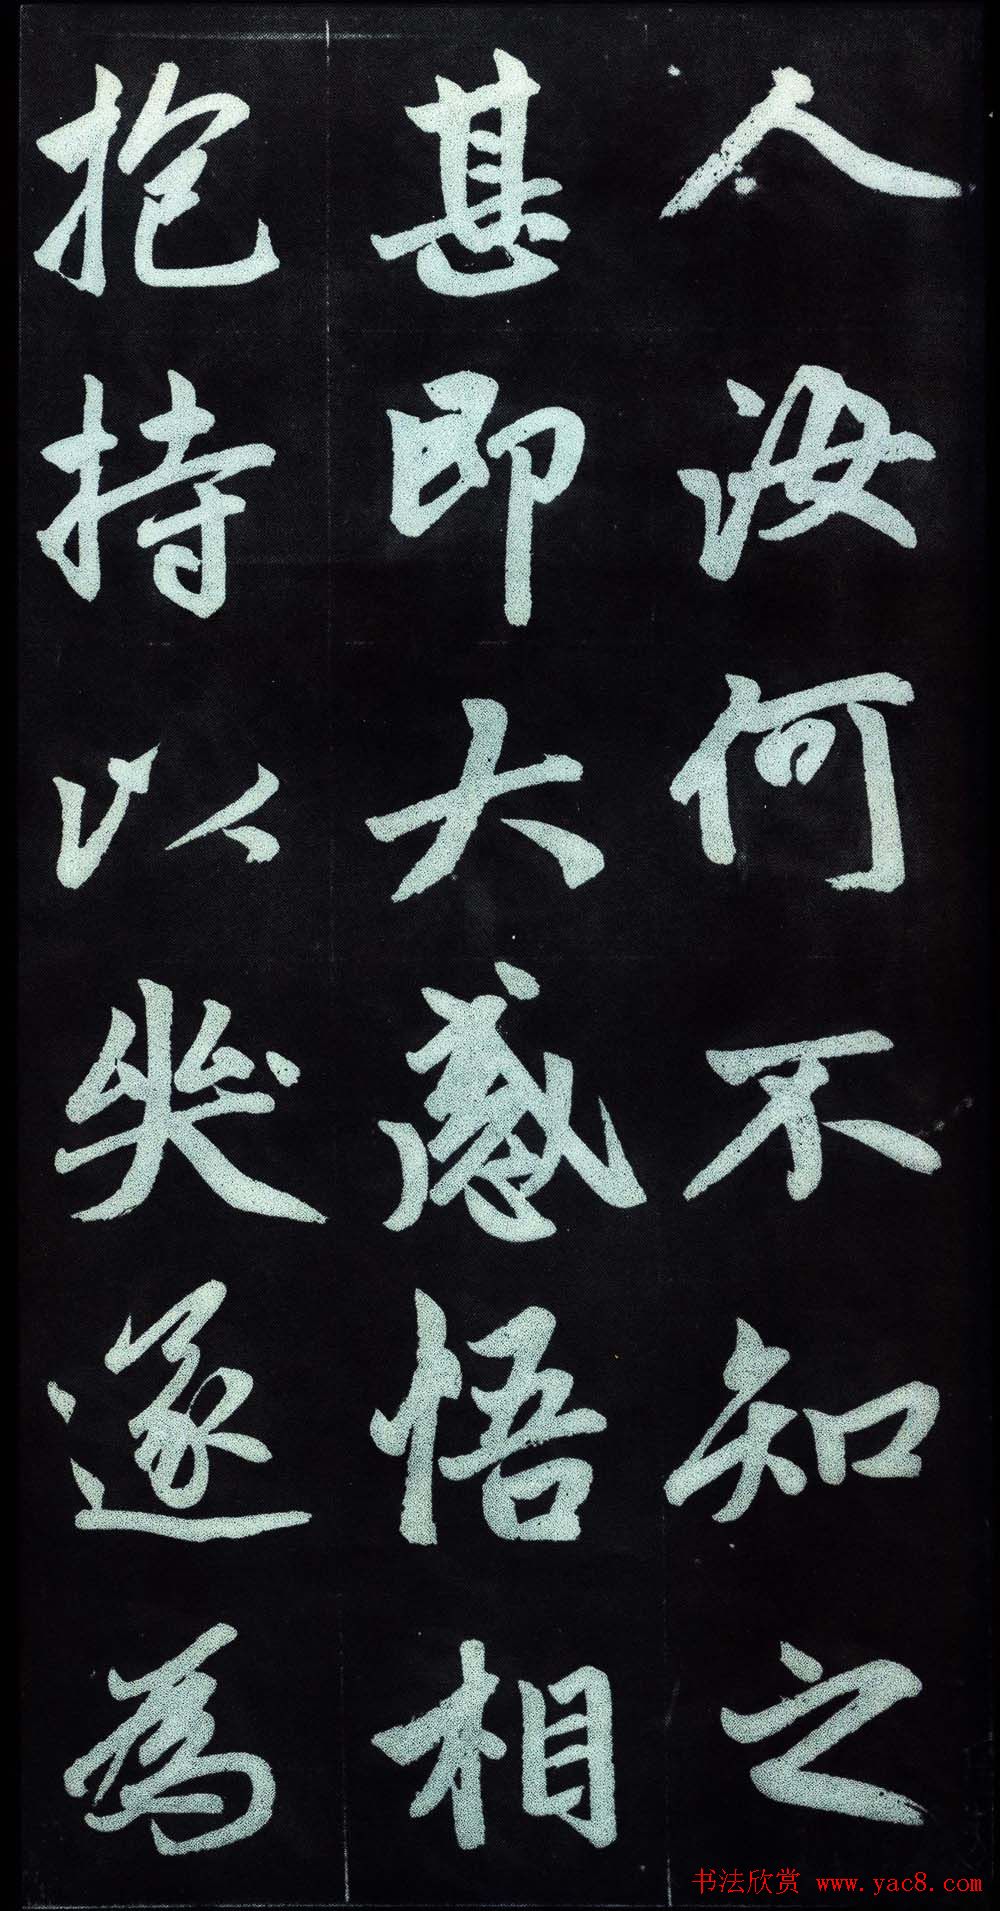 人汝何不知之
甚即大感悟相
抱持以哭遂为
书法欣赏 www.yac8.com